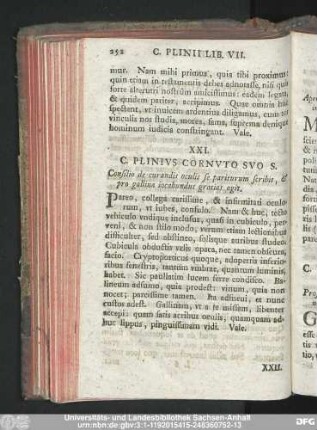 252 C. PLINII LIB. VII.
mur. Nam mihi primus, quia tibi proximus:
quin etiam in testamentis debes adnotasse, nisi quis
forte alterutri nostrûm amicissimus: eadem legata,
& quidem pariter, accipimus. Quae omnia huc
spectant, ut invicem ardentius diligamus, cum tot
vinculis nos studia, mores, fama, suprema denique
hominum iudicia constringant. Vale.
XXI.
C. PLINIVS CORNVTO SVO S.
Consilio de curandis oculis se pariturum scribit, &
pro gallina iocabundus gratias agit.
Pareo, collega carissime, & infirmitati oculo-
rum, ut iubes, consulo. Nam & huc, tecto
vehiculo undique inclusus, quasi in cubiculo, per-
veni, & non stilo modo, verum etiam lectionibus
difficulter, sed abstineo, solisque auribus studeo.
Cubicula obductis velis opaca, nec tamen obscura,
facio. Cryptoporticus quoque, adopertis inferio-
ribus fenestris, tantum umbrae, quantum luminis,
habet. Sic paullatim lucem ferre condisco. Ba-
lineum adsumo, quia prodest: vinum, quia non
nocet; parcissime tamen. Ita adsuevi, et nunc
custos adest. Gallinam, ut a te missam, libenter
accepi: quam satis acribus oculis, quamquam ad-
huc lippus, pinguissimam vidi. Vale.
XXII.
Universitäts- und Landesbibliothek Sachsen-Anhalt
urn:nbn:de:gbv:3:1-1192015415-246360752-13
DFG